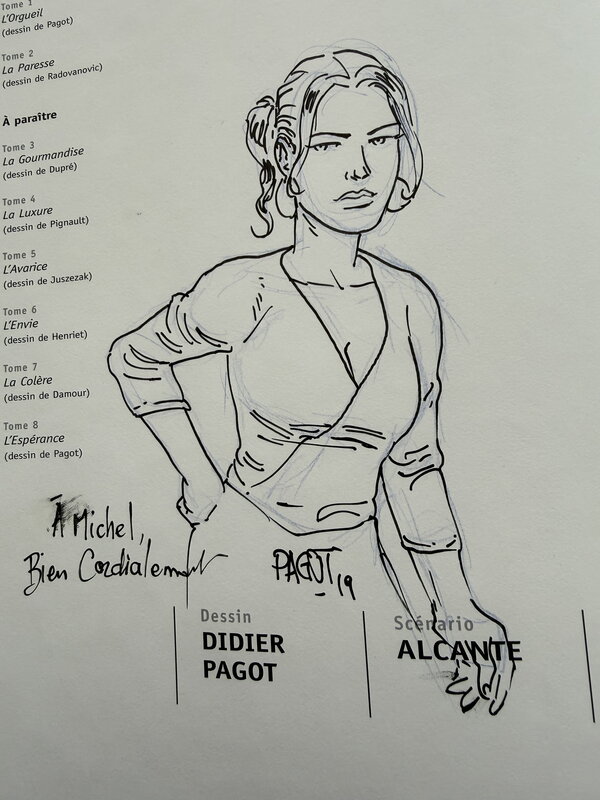 Tome 1
L'Orgueil
(dessin de Pagot)
Tome 2
La Paresse
(dessin de Radovanovic)
À paraître
Tome 3
La Gourmandise
(dessin de Dupré)
Tome 4
La Luxure
(dessin de Pignault)
Tome 5
L'Avarice
(dessin de Juszezak)
Tome 6
L'Envie
(dessin de Henriet)
Tome 7
La Colère
(dessin de Damour)
Tome 8
L'Espérance
(dessin de Pagot)
À Michel,
Bien Cordialement
PAGOT 19
Dessin
DIDIER
PAGOT
Scénario
ALCANTE